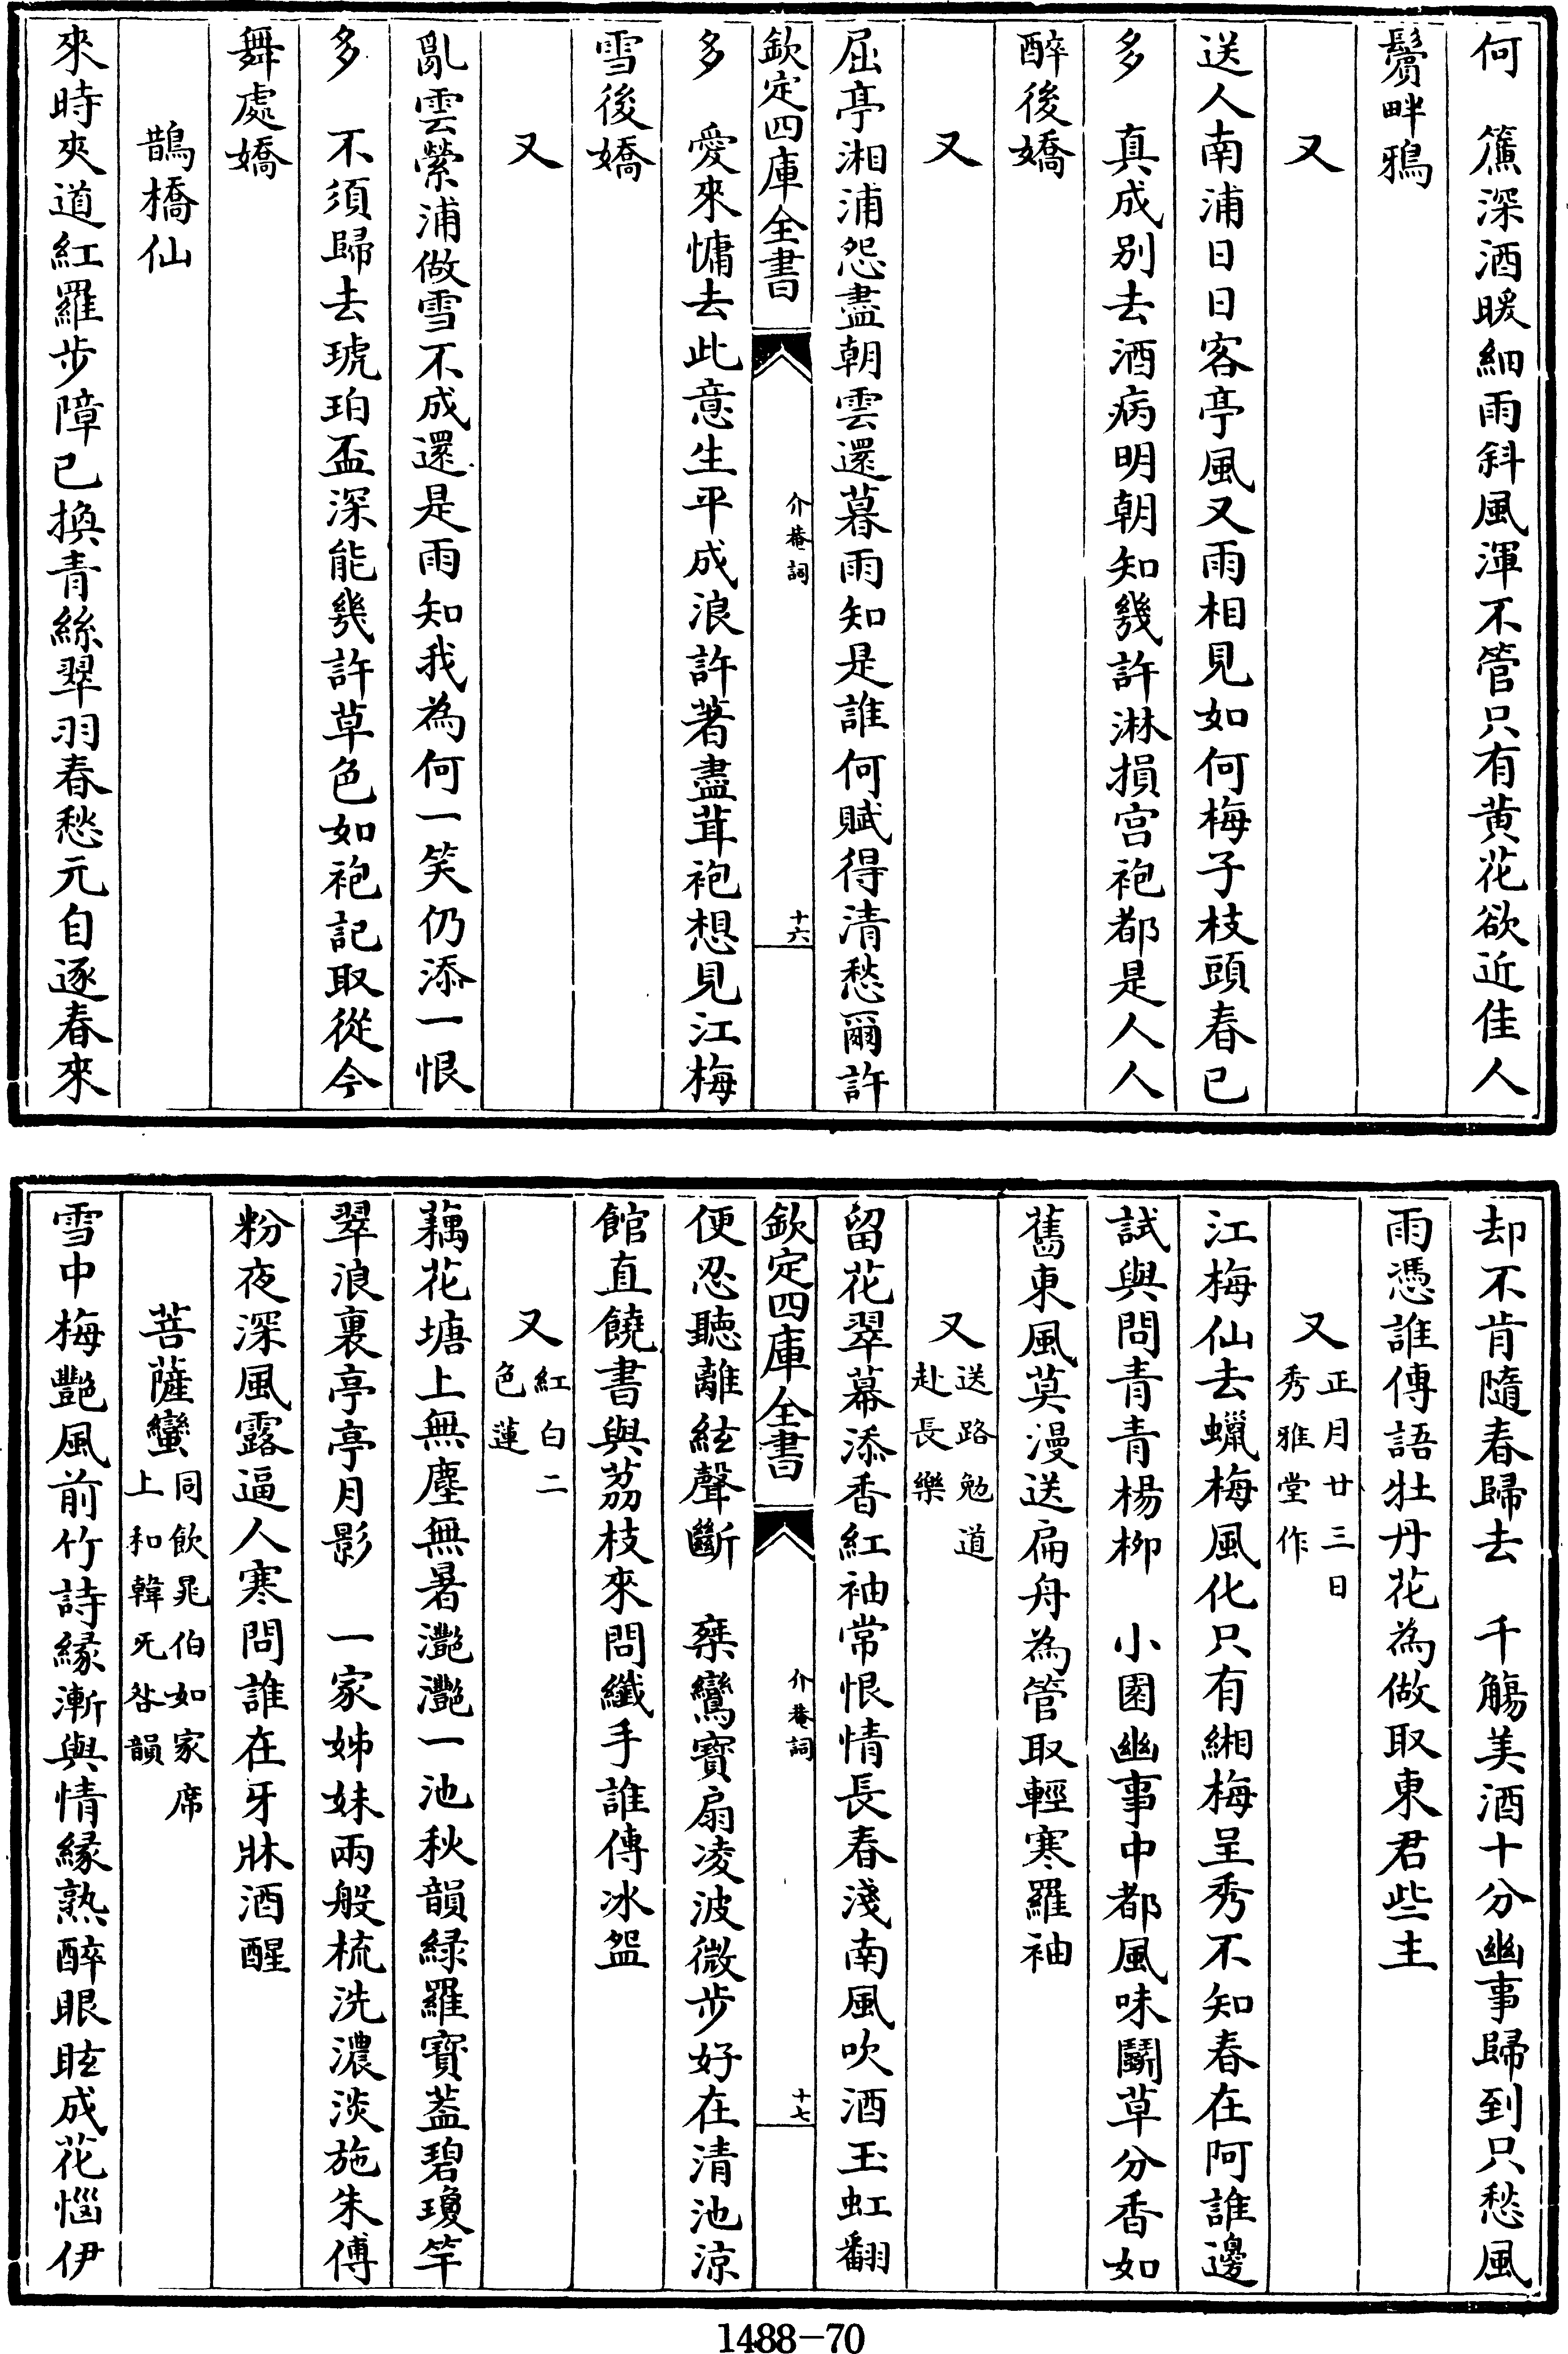 何　簾深酒暖細雨斜風渾不管只有黄花欲近佳人
鬢畔鴉
又
送人南浦日日客亭風又雨相見如何梅子枝頭春已
多　真成别去酒病明朝知幾許淋損宫袍都是人人
醉後嬌
又
屈亭湘浦怨盡朝雲還暮雨知是誰何賦得清愁爾許
欽定四庫全書
介菴詞
十六
多　愛來慵去此意生平成浪許著盡茸袍想見江梅
雪後嬌
又
亂雲縈浦做雪不成還是雨知我為何一笑仍添一恨
多　不須歸去琥珀盃深能幾許草色如袍記取從今
舞處嬌
鵲橋仙
來時夾道紅羅步障已換青絲翠羽春愁元自逐春來
却不肯隨春歸去　千觴美酒十分幽事歸到只愁風
雨憑誰傳語牡丹花為做取東君些主
又正月廿三日秀雅堂作
江梅仙去蠟梅風化只有緗梅呈秀不知春在阿誰邊
試與問青青楊柳　小園幽事中都風味鬭草分香如
舊東風莫漫送扁舟為管取輕寒羅袖
又送路勉道赴長樂
留花翠幕添香紅袖常恨情長春淺南風吹酒玉虹翻
欽定四庫全書
介菴詞
十七
便忍聽離絃聲斷　椉鸞寶扇凌波微步好在清池涼
館直饒書與荔枝來問纖手誰傳冰盌
又紅白二色蓮
藕花塘上無塵無暑灔灔一池秋韻緑羅寶蓋碧瓊竿
翠浪裏亭亭月影　一家姊妹兩般梳洗濃淡施朱傅
粉夜深風露逼人寒問誰在牙牀酒醒
菩薩蠻同飲晁伯如家席上和韓旡咎韻
雪中梅艷風前竹詩緣漸與情緣熟醉眼眩成花惱伊
1488-70